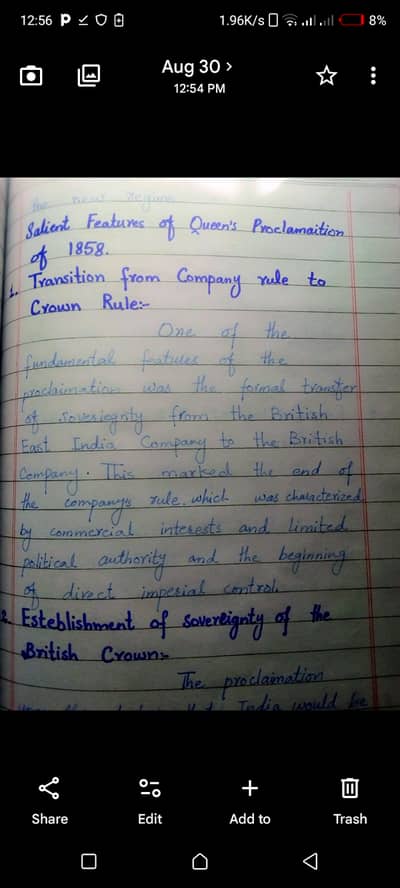 12:56
1.96K/s
8%
Aug 30 >
12:54 PM
the new regime
Salient Features of Queen's Proclamaition
of 1858.
1. Transition from Company rule to
Crown Rule:-
One of the
fundamental featules of the
proclaimation was the formal transfer
of Soveriegnty from the British
East India Company to the British
Company. This marked the end of
the company's rule, which was characterized
by commercial interests and limited
political authority and the beginning
of direct imperial control.
2. Esteblishment of Sovereignty of the
British Crown:-
The proclaimation
India would be
Share
Edit
Add to
Trash